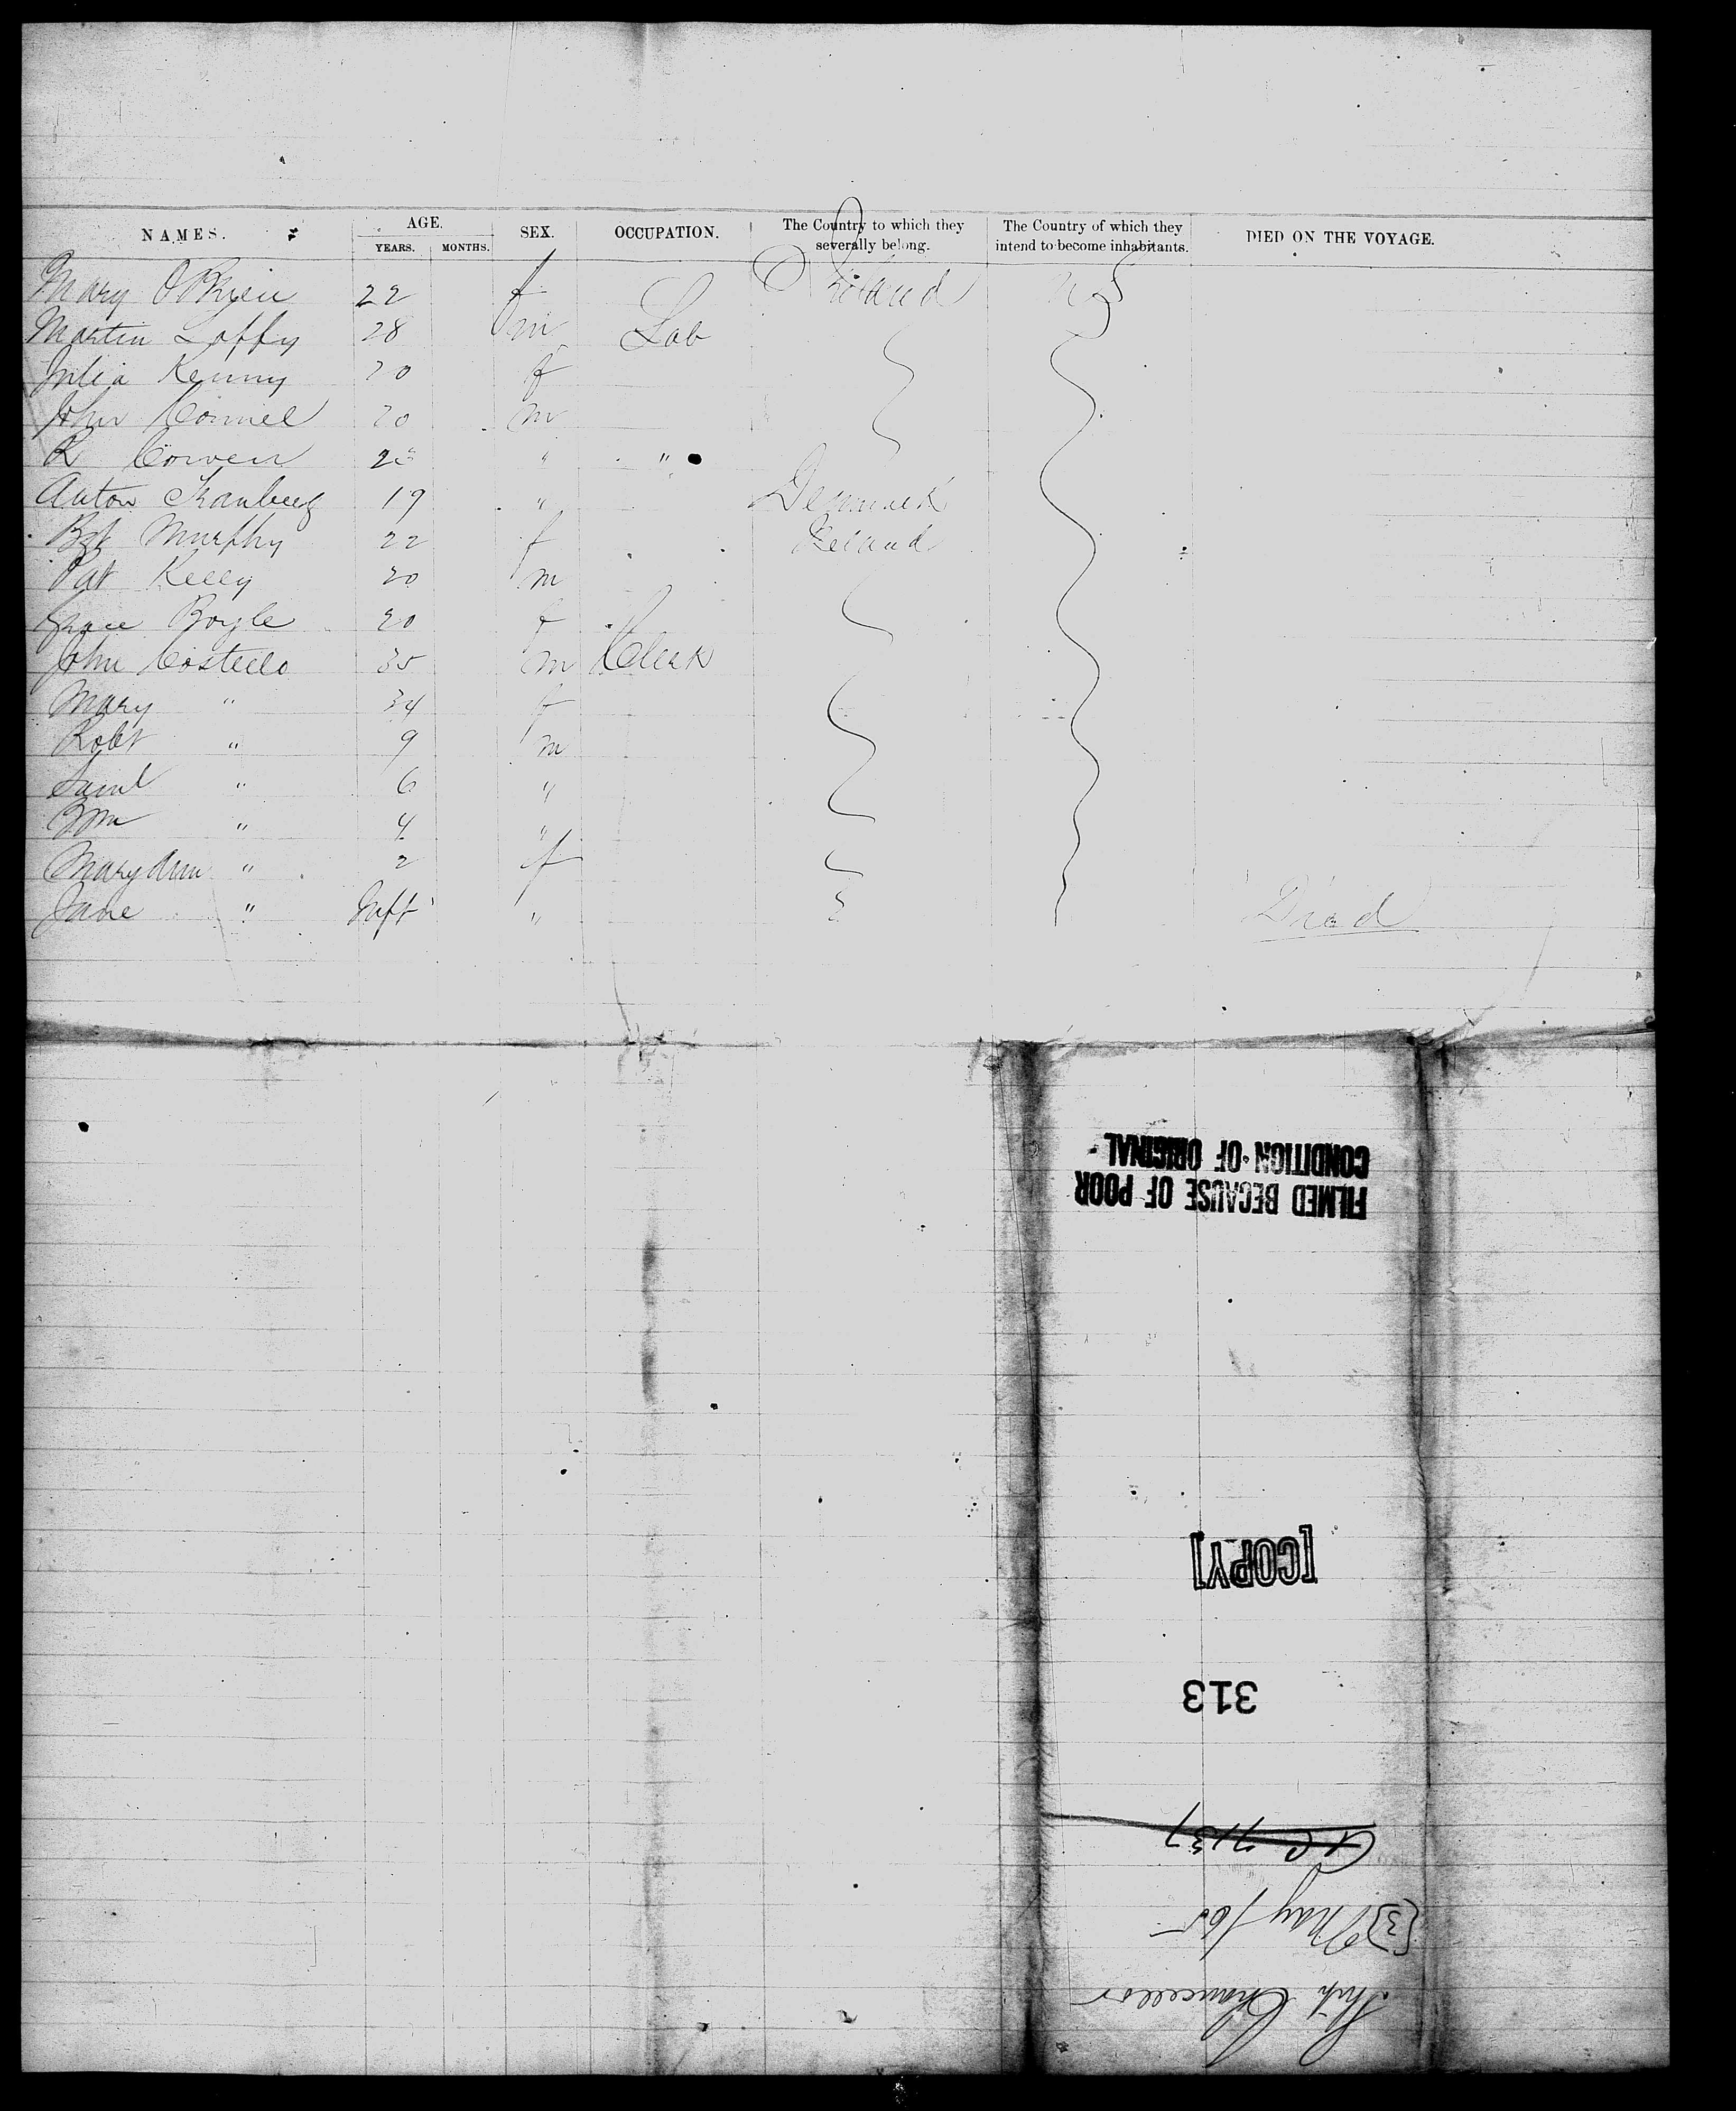 NAMES. AGE. SEX. OCCUPATION. The Country to which they severally belong. The Country of which they intend to become inhabitants. DIED ON THE VOYAGE.
YEARS. MONTHS.
Mary OBrien 22 f Ireland US
Martin Laffy 28 m Lab
Julia Kenny 20 f
John Connel 20 m
R 23 " "
Anton 19 " Denmark
Bgt Murphy 22 f Ireland
Pat Kelly 20 m
Grace Boyle 20 f
John Costello 35 m Clerk
Mary " 34 f
Robt " 9 m
Saml " 6 "
Wm " 4 "
Mary Ann " 2 f
Jane " Inft " Died
FILMED BECAUSE OF POOR
CONDITION OF ORIGINAL
[COPY]
313
7137
(3) May /65
Ship Chancellor